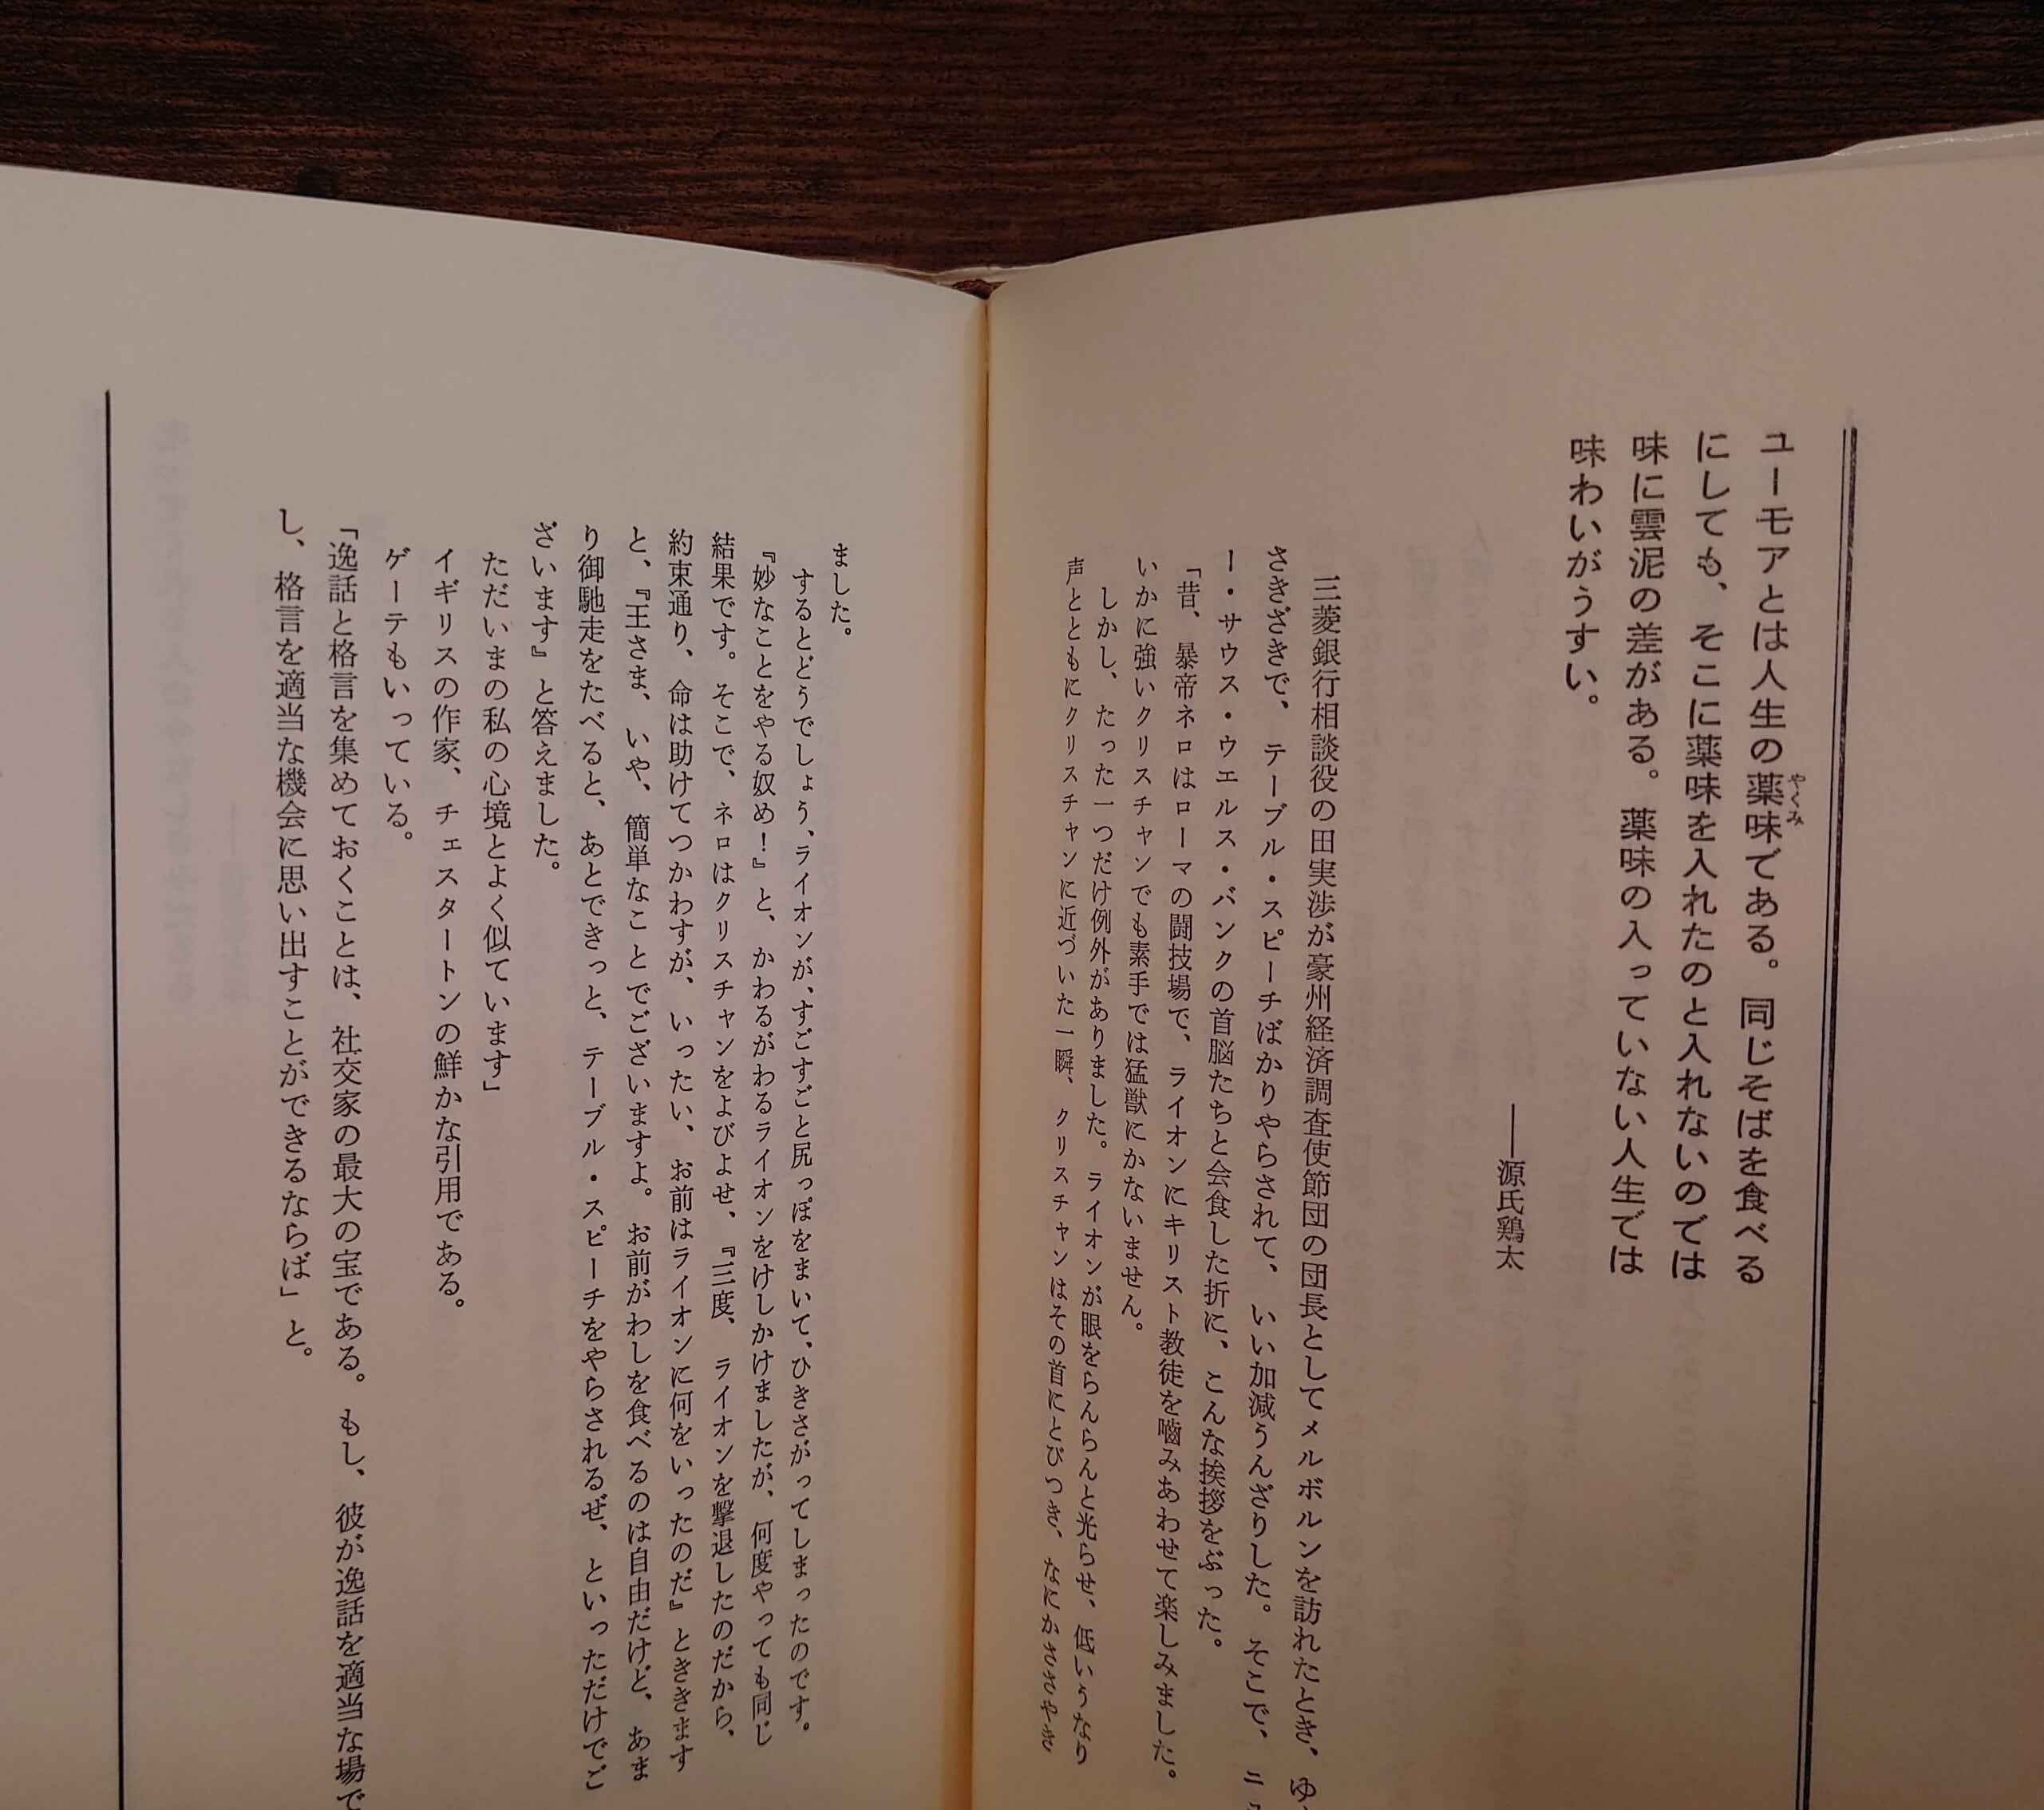 ユーモアとは人生の薬味である。同じそばを食べる
やくみ
にしても、そこに薬味を入れたのと入れないのでは
味に雲泥の差がある。薬味の入っていない人生では
味わいがうすい。
――源氏鶏太
三菱銀行相談役の田実渉が豪州経済調査使節団の団長としてメルボルンを訪れたとき、ゆ
さきざきで、テーブル・スピーチばかりやらされて、いい加減うんざりした。そこで、ニ
ー・サウス・ウエルス・バンクの首脳たちと会食した折に、こんな挨拶をぶった。
「昔、暴帝ネロはローマの闘技場で、ライオンにキリスト教徒を嚙みあわせて楽しみました。
いかに強いクリスチャンでも素手では猛獣にかないません。
しかし、たった一つだけ例外がありました。ライオンが眼をらんらんと光らせ、低いうなり
声とともにクリスチャンに近づいた一瞬、クリスチャンはその首にとびつき、なにかささやき
ました。
するとどうでしょう、ライオンが、すごすごと尻っぽをまいて、ひきさがってしまったのです。
『妙なことをやる奴め！』と、かわるがわるライオンをけしかけましたが、何度やっても同じ
結果です。そこで、ネロはクリスチャンをよびよせ、『三度、ライオンを撃退したのだから、
約束通り、命は助けてつかわすが、いったい、お前はライオンに何をいったのだ』とききます
と、『王さま、いや、簡単なことでございますよ。お前がわしを食べるのは自由だけど、あま
り御馳走をたべると、あとできっと、テーブル・スピーチをやらされるぜ、といっただけでご
ざいます』と答えました。
ただいまの私の心境とよく似ています」
イギリスの作家、チェスタートンの鮮かな引用である。
ゲーテもいっている。
「逸話と格言を集めておくことは、社交家の最大の宝である。もし、彼が逸話を適当な場で
し、格言を適当な機会に思い出すことができるならば」と。